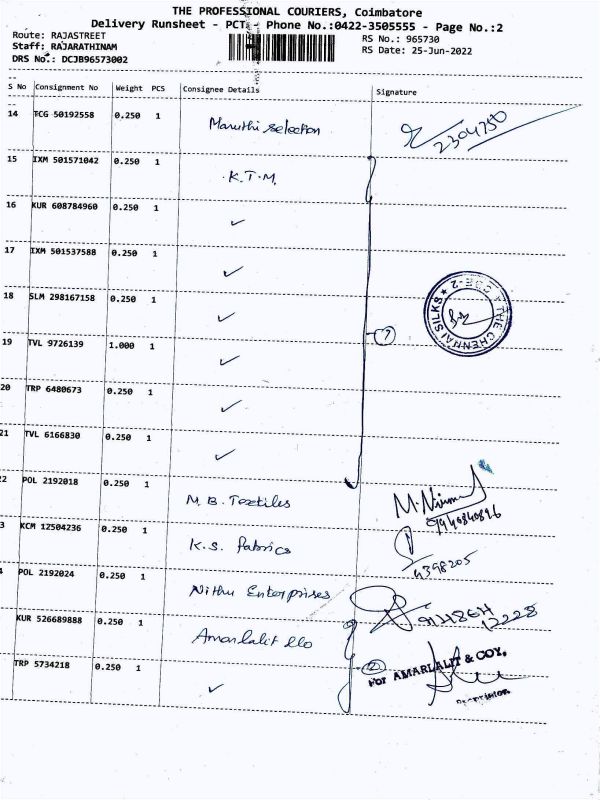 THE PROFESSIONAL COURIERS, Coimbatore
Delivery Runsheet - PCT - Phone No.:0422-3505555 - Page No.:2
Route: RAJASTREET
Staff: RAJARATHINAM
DRS No.: DCJB96573002
RS No.: 965730
RS Date: 25-Jun-2022
S No Consignment No Weight PCS Consignee Details Signature
14 TCG 50192558 0.250 1 Maruthi Selection 2304750
15 IXM 501571042 0.250 1 K.T.M.
16 KUR 608784960 0.250 1 ✓
17 IXM 501537588 0.250 1 ✓
18 SLM 298167158 0.250 1 ✓
THE CHENNAI SILKS
CBE-2
19 TVL 9726139 1.000 1 ✓ 7
20 TRP 6480673 0.250 1 ✓
21 TVL 6166830 0.250 1 ✓
2 POL 2192018 0.250 1 M.B. Textiles
3 KCM 12504236 0.250 1 K.S. fabrics 4398205
POL 2192024 0.250 1 Nithu Enterprises
KUR 526689888 0.250 1 Amarlalit
TRP 5734218 0.250 1 ✓ 2
For AMARLALIT & COY.